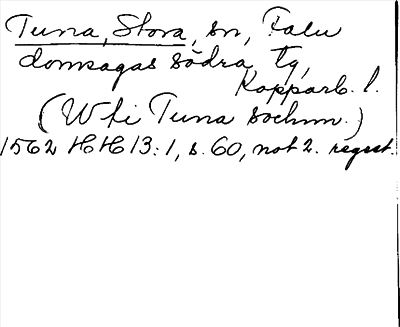 Tuna, Stora, sn, Falu
domsagas södra tg,
Kopparb. l.
(Wti Tuna sochnn.)
1562 HH 13:1, s. 60, not 2. regest.